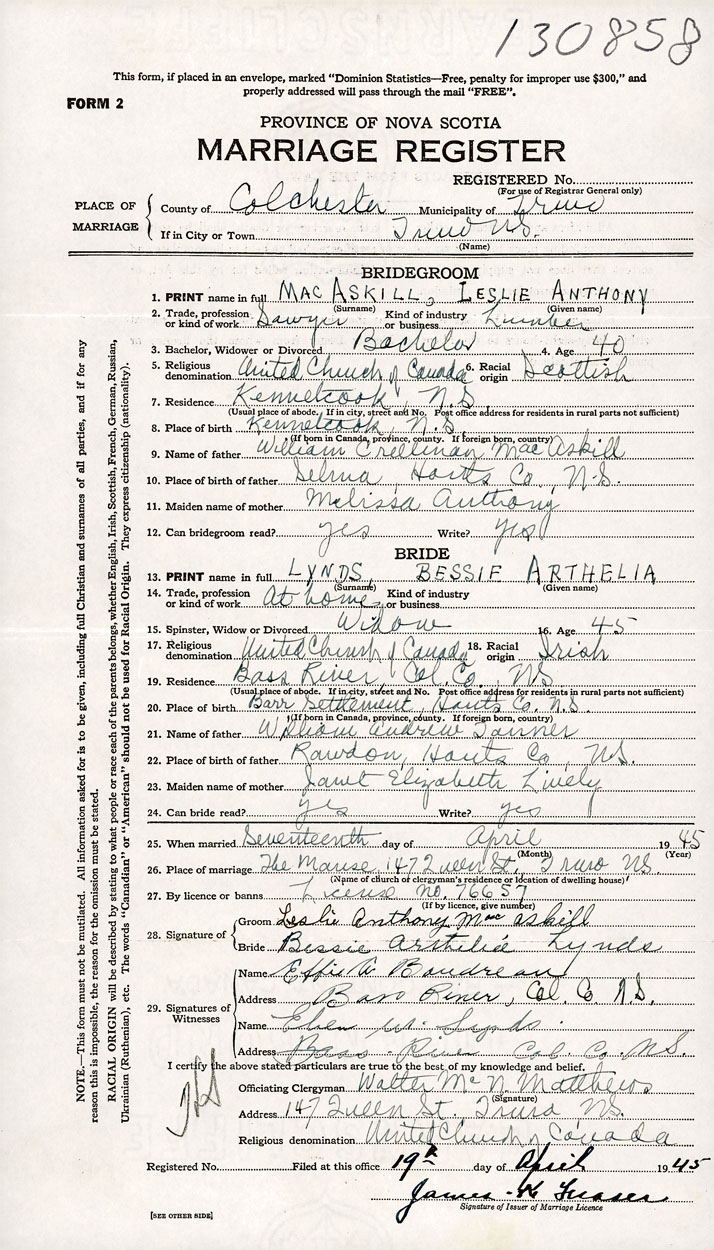 130858
This form, if placed in an envelope, marked "Dominion Statistics—Free, penalty for improper use $300," and
properly addressed will pass through the mail "FREE".
FORM 2
PROVINCE OF NOVA SCOTIA
MARRIAGE REGISTER
REGISTERED No.
(For use of Registrar General only)
PLACE OF MARRIAGE
County of Colchester Municipality of Truro
If in City or Town Truro N.S.
(Name)
BRIDEGROOM
1. PRINT name in full MAC ASKILL, LESLIE ANTHONY
(Surname) (Given name)
2. Trade, profession or kind of work Sawyer Kind of industry or business Lumber
3. Bachelor, Widower or Divorced Bachelor 4. Age 40
5. Religious denomination United Church of Canada 6. Racial origin Scottish
7. Residence Kennetcook, N.S.
(Usual place of abode. If in city, street and No. Post office address for residents in rural parts not sufficient)
8. Place of birth Kennetcook, N.S.
(If born in Canada, province, county. If foreign born, country)
9. Name of father William Creelman MacAskill
10. Place of birth of father Selma, Hants Co., N.S.
11. Maiden name of mother Melissa Anthony
12. Can bridegroom read? yes Write? yes
BRIDE
13. PRINT name in full LYNDS, BESSIE ARTHELIA
(Surname) (Given name)
14. Trade, profession or kind of work At home Kind of industry or business
15. Spinster, Widow or Divorced Widow 16. Age 45
17. Religious denomination United Church of Canada 18. Racial origin Irish
19. Residence Bass River, Col. Co., N.S.
(Usual place of abode. If in city, street and No. Post office address for residents in rural parts not sufficient)
20. Place of birth Barr Settlement, Hants Co. N.S.
(If born in Canada, province, county. If foreign born, country)
21. Name of father William Andrew Tanner
22. Place of birth of father Rawdon, Hants Co., N.S.
23. Maiden name of mother Janet Elizabeth Lively
24. Can bride read? yes Write? yes
25. When married Seventeenth day of April 1945
(Month) (Year)
26. Place of marriage The Manse, 147 Queen St., Truro N.S.
(Name of church of clergyman's residence or location of dwelling house)
27. By licence or banns License no. 76657
(If by licence, give number)
28. Signature of
Groom Leslie Anthony MacAskill
Bride Bessie Arthelia Lynds
29. Signatures of Witnesses
Name Effie A Boudreau
Address Bass River, Col. Co N.S.
Name Eben W. Lynds.
Address Bass River Col. Co. N.S.
I certify the above stated particulars are true to the best of my knowledge and belief.
Officiating Clergyman Walter McN. Matthews
(Signature)
Address 147 Queen St., Truro N.S.
Religious denomination United Church of Canada
Registered No. Filed at this office 19th day of April 1945
James K Fraser
Signature of Issuer of Marriage Licence
[SEE OTHER SIDE]
NOTE.—This form must not be mutilated. All information asked for is to be given, including full Christian and surnames of all parties, and if for any
reason this is impossible, the reason for the omission must be stated.
RACIAL ORIGIN will be described by stating to what people or race each of the parents belongs, whether English, Irish, Scottish, French, German, Russian,
Ukrainian (Ruthenian), etc. The words "Canadian" or "American" should not be used for Racial Origin. They express citizenship (nationality).